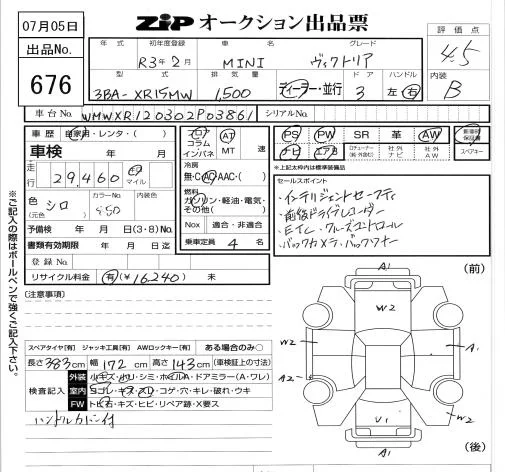 07月05日
ZiP オークション出品票
出品No.
676
年式 初年度登録 車名 グレード
R3年2月 MINI ヴィクトリア
型式 排気量 ドア ハンドル
3BA-XR15MW 1,500 ディーラー・並行 3 左・右
評価点
4.5
内装
B
車台No. WMWXR120302P03861 シリアルNo.
車歴 自家用・レンタ・( )
車検 年 月
走行 29,460 km マイル
色 (元色) シロ カラーNo. 850 内装色
予備検 年 月 日(3・8)No.
書類有効期限 年 月 日迄
登録No.
リサイクル料金 有(¥16,240) 未
フロア コラム インパネ AT MT 速
冷房
無・C・AC・AAC・( )
燃料
ガソリン・軽油・電気・その他( )
Nox 適合・非適合
乗車定員 4 名
PS PW SR 革 AW
ナビ エアB 社外ナビ 社外AW
新車時保証書
スペアキー
※上記太枠内は標準装備品
セールスポイント
・インテリジェントセーフティ
・前後ドライブレコーダー
・ETC・クルーズコントロール
・バックカメラ・バックソナー
※ご記入の際はボールペンで強くご記入下さい。
[注意事項]
スペアタイヤ[有] ジャッキ工具[有] AWロックキー[有] ある場合のみ○
長さ383cm 幅172cm 高さ143cm (車検証上の寸法)
検査記入
外装 小キズ・凹リ・シミ・ホイルA・ドアミラー(A・ワレ)
室内 ヨゴレ・キズ・スレ・コゲ・穴・キレ・破れ・ウキ
FW トビ石・キズ・ヒビ・リペア跡・X要ス
ハンドルカバー付
(前)
A1
W2
W2 A1
A2
W2
U1
A1
(後)